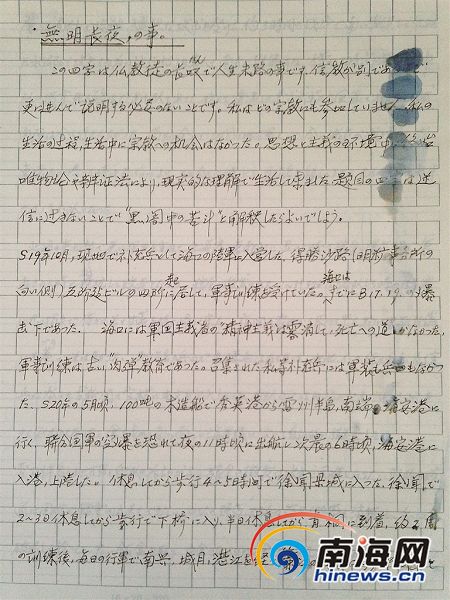 無明長夜,の事。
この四字は仏教徒の長嘆で人生末路の事です、信教が別であ
更に進んで説明する必定のないことです。私はどの宗教にも参加していません。私の
生活の过程,生活中に宗教への机会はなかった。思想と主義の环境中
唯物论 辩证法により,現実的な理解で生活して来ました。題目の四字は迷
信に过ぎないことで"黒闇中の苦斗"と解釈したらよいでしよう。
S19年10月,現地で补充兵として海口の陸軍に入営した。得勝沙路
向い側)五階建ビルの四階に起居して,軍事訓練を受けていた。海口はすでにB17.19.の爆
击下であった。 海口には軍国主義者の"精神主義は雲消して,死亡への道しかなかった,
軍事訓練は古い"肉弾教育であった。召集された私等补充兵には軍装も兵 もなかっ
た。S20年の5月頃,100吨の木造船で秀英港から雷州半島,南端 海安港に
行く,聯合国軍の空爆を恐れて夜の11時頃に出航して次晨の6時頃,海安港に
入港,上陸した。休息してから歩行4~5時间で徐聞県城に入った,徐聞で
2~3日休息してから歩行で下橋に入り,半日休息してから 到着,约 周
の訓練後,毎日の行軍で南兴,城月,湛江を経
南海网
hinews.cn